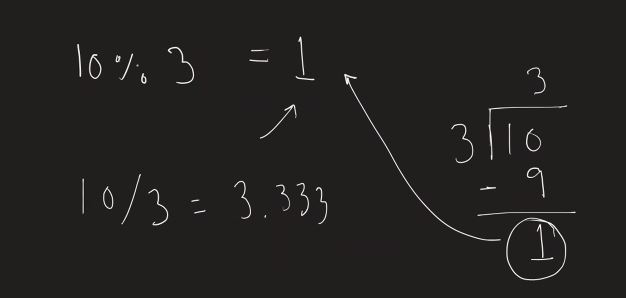 10 % 3 = 1
10/3 = 3.333
3
3 10
- 9
1